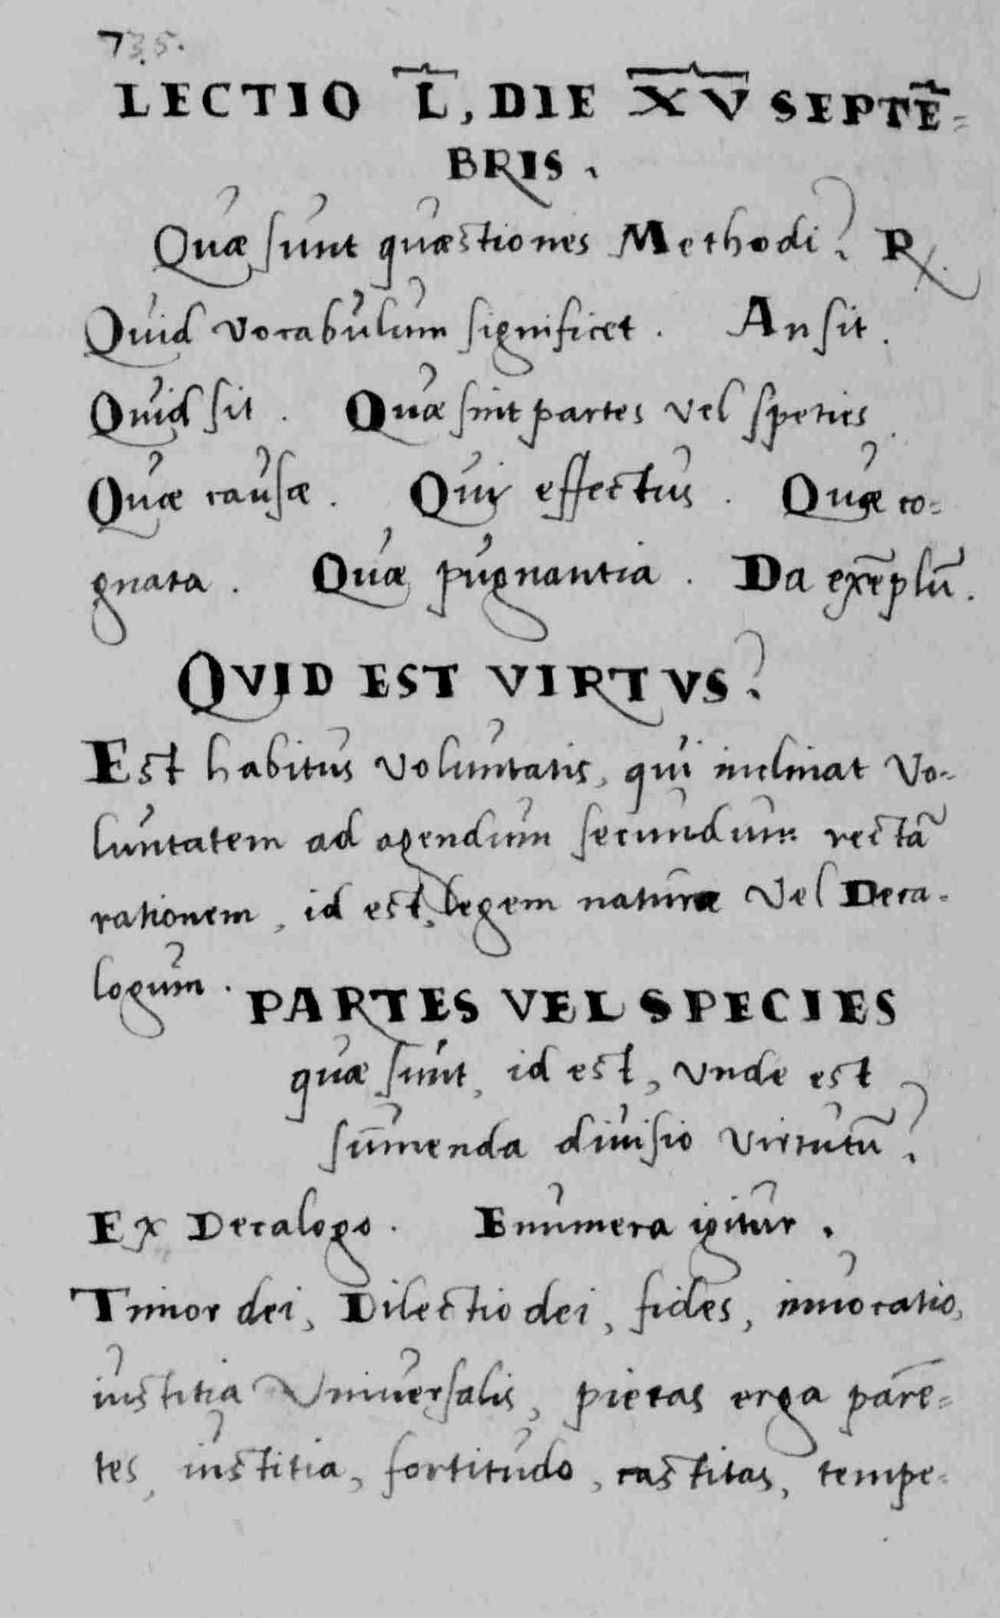 735.
LECTIO L, DIE XV SEPTE͂=
BRIS.
Quæ sunt quæstiones Methodi? ℞.
Quid vocabulum significet. An sit.
Quid sit. Quæ sint partes vel speties.
Quæ causæ. Qui effectus. Quæ co=
gnata. Quæ pugnantia. Da exe͂plu͂.
QVID EST VIRTVS?
Est habitus voluntatis, qui inclinat vo-
luntatem ad agendum secundum recta͂
rationem, id est, legem naturæ vel Deca-
logum.
PARTES VEL SPECIES
quæ sunt, id est, vnde est
sum̄enda diuisio virtutu͂?
Ex Decalogo. Enumera igitur.
Timor dei, Dilectio dei, fides, inuocatio,
iustitia Vniuersalis, pietas erga pare͂=
tes, iustitia, fortitudo, castitas, tempe=